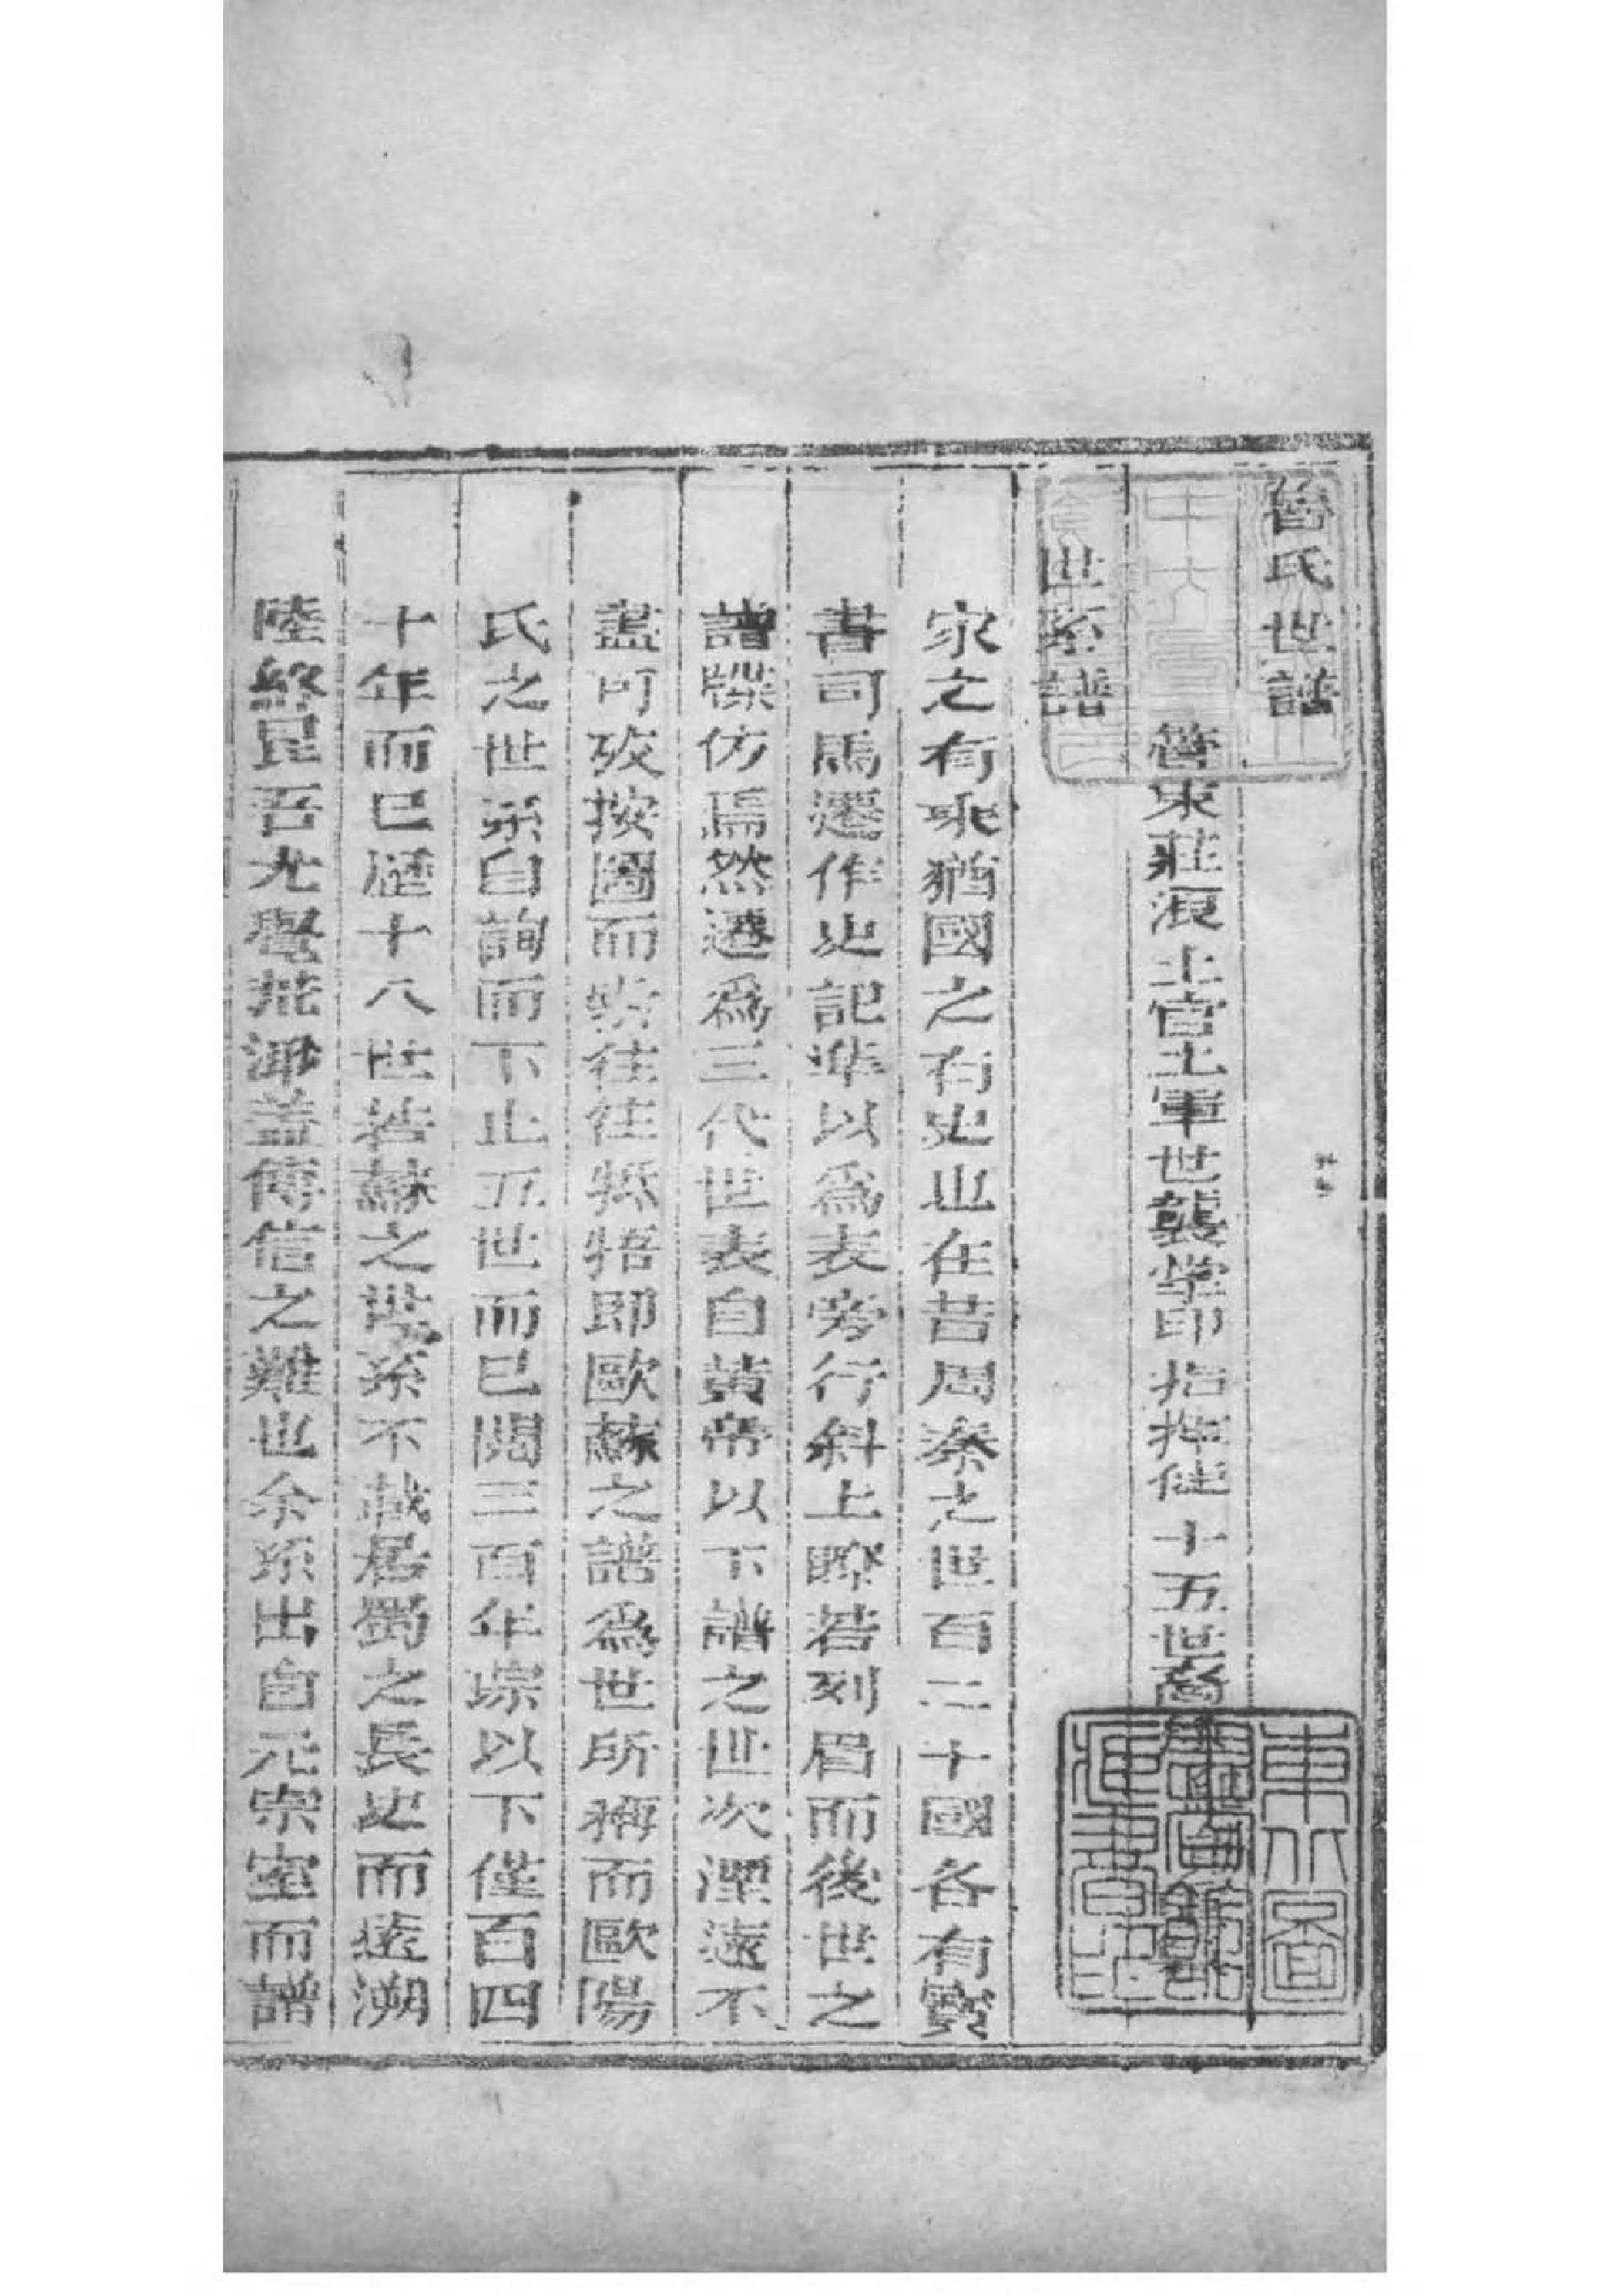 魯氏世譜
管東莊浪土官土軍世襲掌印指揮使十五世裔
世系譜
家之有乘猶國之有史也在昔周秦之世百二十國各有寳
書司馬遷作史記準以爲表旁行斜上瞭若刻眉而後世之
譜牒仿焉然遷爲三代世表自黃帝以下譜之世次湮遠不
盡可攷按圖而索往往牴牾即歐蘇之譜爲世所稱而歐陽
氏之世系自詢而下止五世而已閱三百年琮以下僅百四
十年而已歷十八世若蘇之世系不載居蜀之長史而遠溯
陸終昆吾尤覺荒渺蓋傳信之難也余系出自元宗室而譜